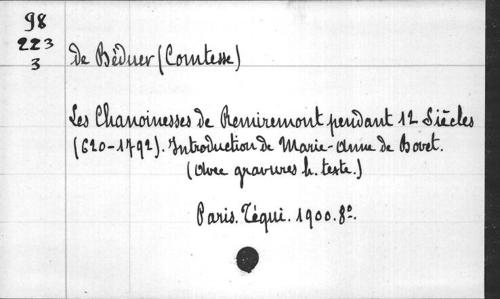 98
223
3
de Béduer (Comtesse)
Les Chanoinesses de Remiremont pendant 12 Siècles
(620-1792). Introduction de Marie-Anne de Bovet.
(Avec gravures h. texte.)
Paris. Téqui. 1900. 8º.